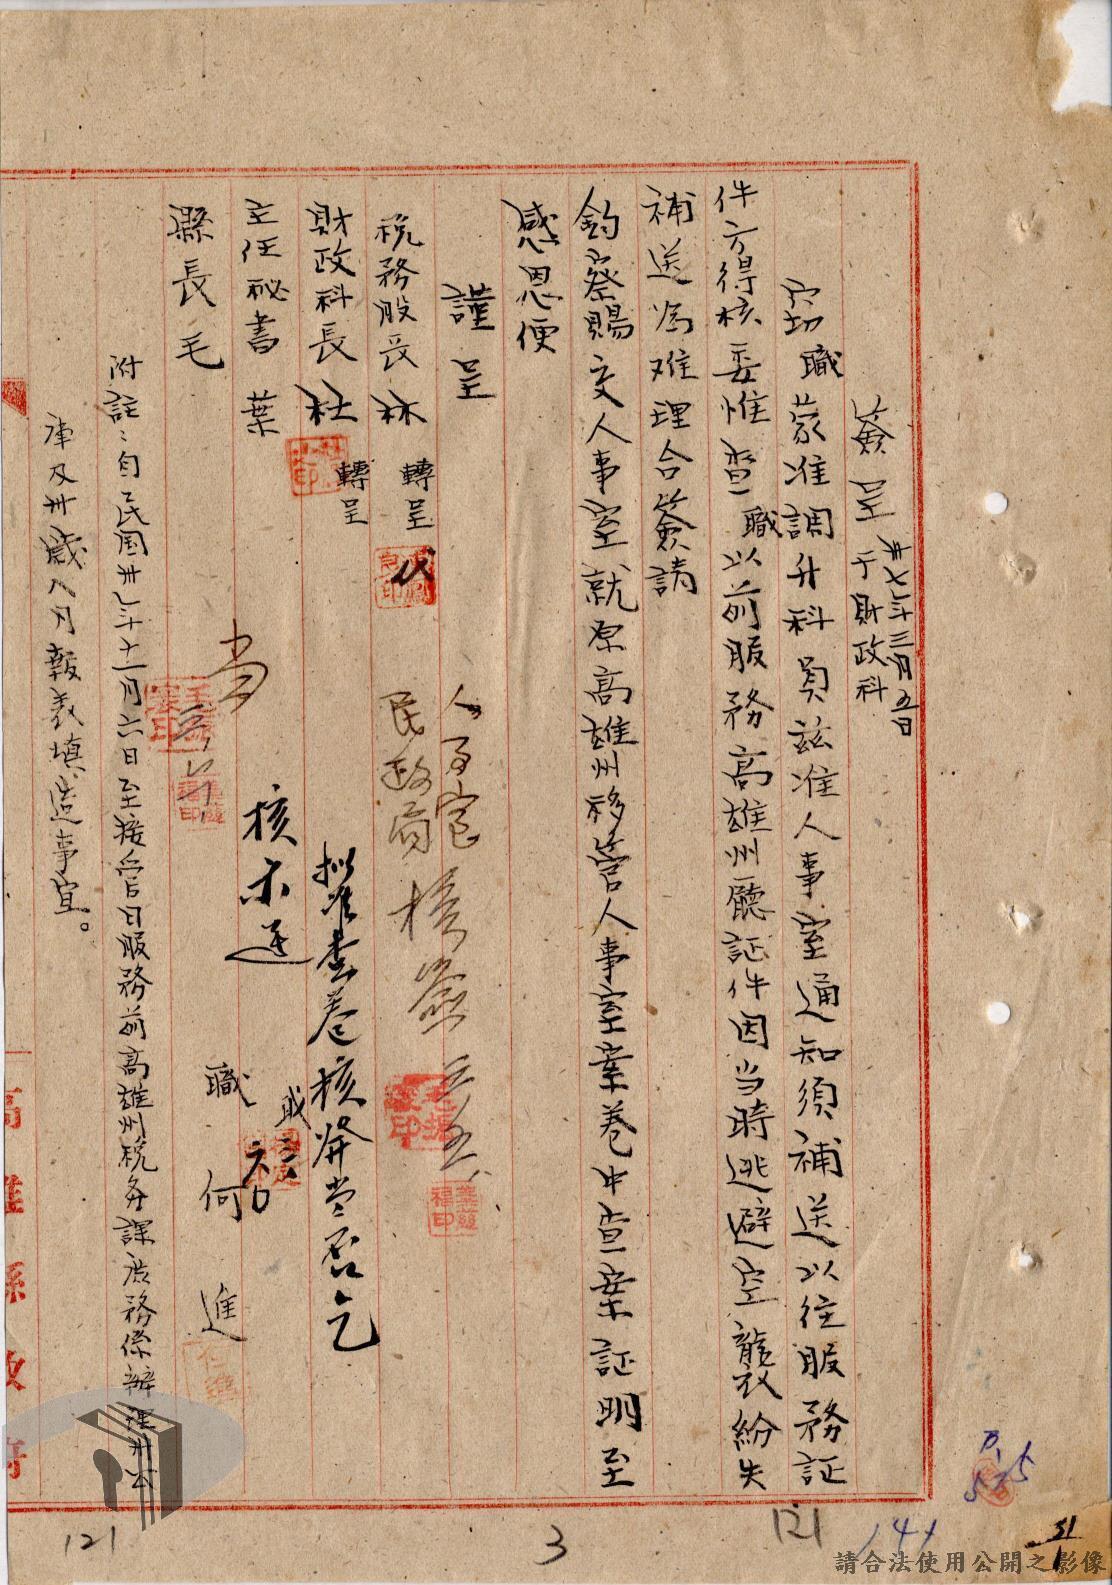 簽呈 卅七年三月五日
于財政科
窃職蒙准調升科員茲准人事室通知須補送以往服務証
件方得核委惟查職以前服務高雄州廳証件因当時逃避空襲致紛失
補送為难理合簽請
鈞察賜交人事室就原高雄州移管人事室案卷中查案証明至
感恩便
謹呈
稅務股長林 轉呈
財政科長林 轉呈
主任秘書葉
縣長毛
職何進
附註：自民国卅年十一月六日至接管日服務前高雄州稅務課庶務係辦理卅公
津及卅歲八月報表填造事宜。
人事室
民政局 核簽
拟准查卷核辦当否乞
核示
高雄縣政府
121
3
121
141
請合法使用公開之影像